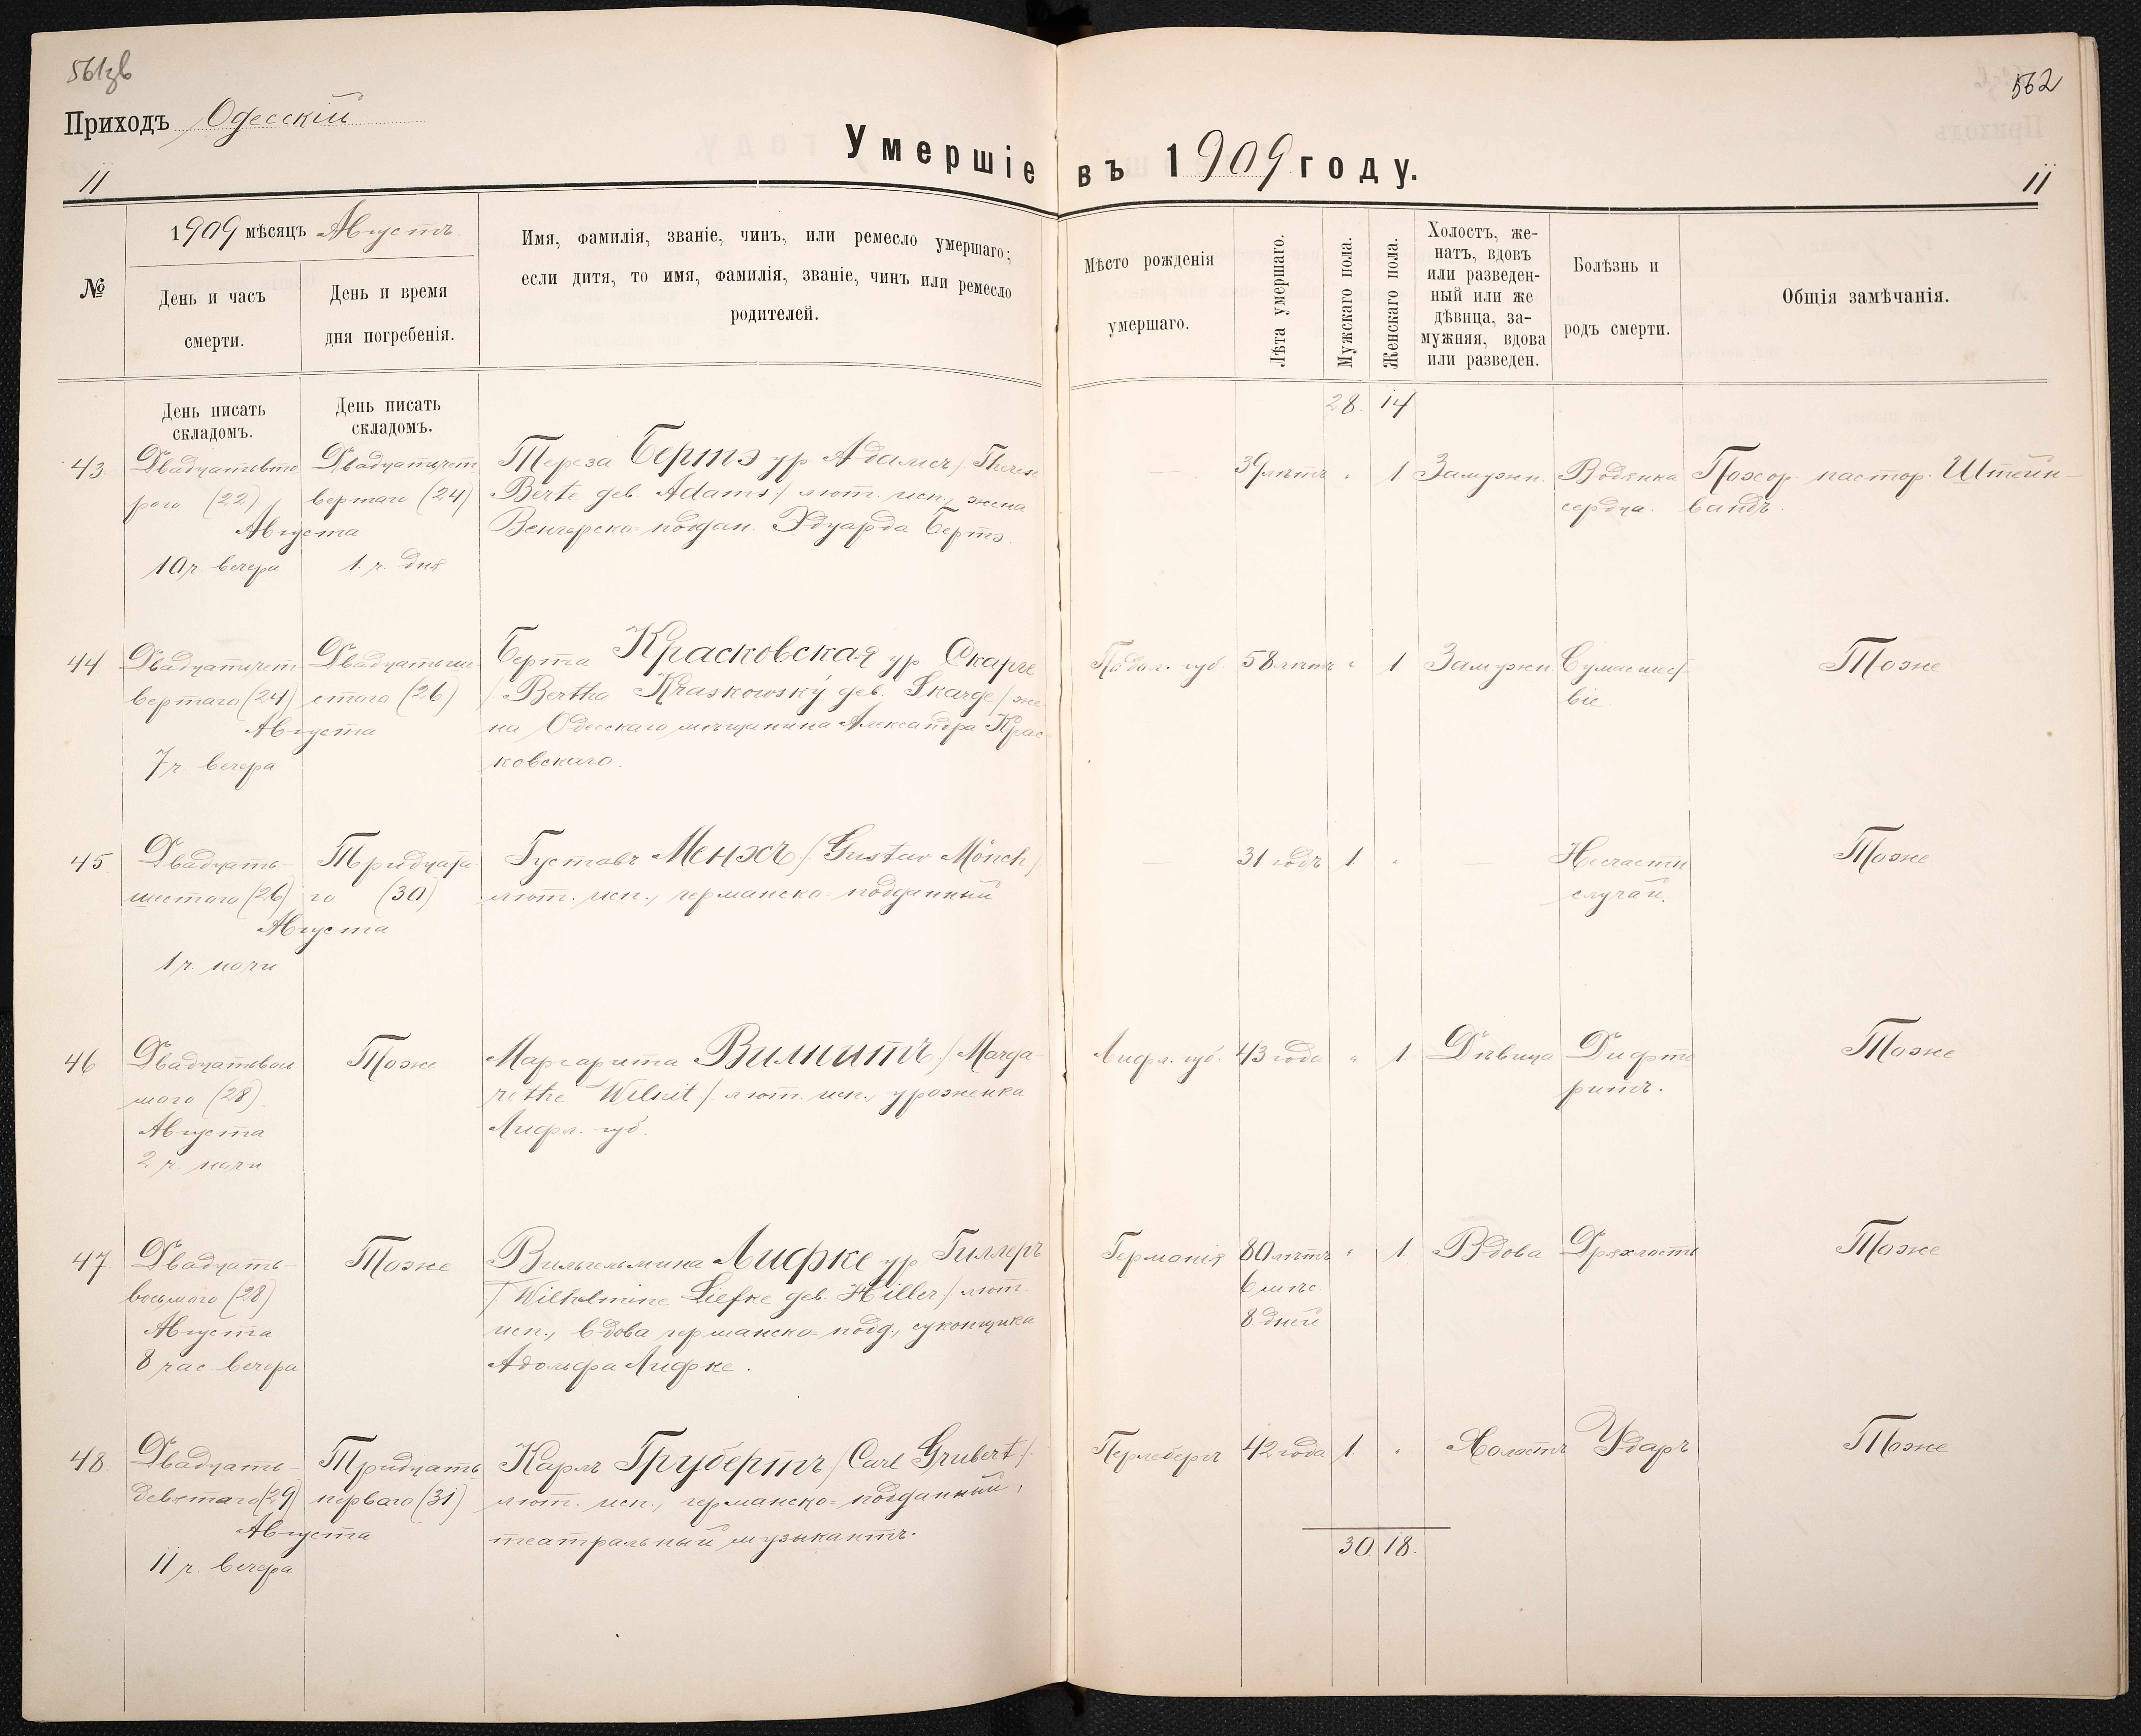 561зв
562
Приходъ Одесскій
Умершіе въ 1909 году.
11
11
№
1909 мѣсяцъ Августъ.
День и часъ
смерти.
День и время
дня погребенія.
Имя, фамилія, званіе, чинъ, или ремесло умершаго;
если дитя, то имя, фамилія, званіе, чинъ или ремесло
родителей.
Мѣсто рожденія
умершаго.
Лѣта умершаго.
Мужскаго пола.
Женскаго пола.
Холостъ, же-
натъ, вдовъ
или разведен-
ный или же
дѣвица, за-
мужняя, вдова
или разведен.
Болѣзнь и
родъ смерти.
Общія замѣчанія.
День писать
складомъ.
День писать
складомъ.
28. 14
43.
Двадцатьвто
рого (22)
Августа
10 ч. вечера
Двадцатичет
вертаго (24)
1. ч. дня
Тереза Бертэ ур Адамсъ / Therese
Berte geb. Adams / лют. исп., жена
Венгерско-поддан. Эдуарда Бертэ.
—
39 лѣтъ
"
1
Замужн.
Водянка
сердца.
Похор. пастор. Штейн-
вандъ.
44.
Двадцатичет
вертаго (24)
Августа
7 ч. вечера
Двадцатьше
стого (26)
Берта Красковская ур Скарге
/ Bertha Kraskowsky geb. Skarge / же
на Одесскаго мѣщанина Александра Крас-
ковскаго.
Подол. губ.
58 лѣтъ
"
1
Замужн.
Сумасшест
віе
Тоже
45
Двадцать-
шестого (26)
Августа
1 ч. ночи
Тридцата
го (30)
Густавъ Менхъ / Gustav Mönch /
лют. исп., германско-подданный
—
31 годъ
1.
"
—
Несчастн
случай.
Тоже
46
Двадцатьвось
мого (28).
Августа
2 ч. ночи
Тоже
Маргарита Вилнитъ / Marga-
rethe Wilnit / лют. исп., уроженка
Лифл. губ.
Лифл. губ.
43 года
"
1.
Дѣвица
Дифте
ритъ.
Тоже
47
Двадцать-
восьмого (28)
Августа
8 час. вечера
Тоже
Вильгельмина Лифке ур. Гиллеръ
/ Wilhelmine Liefke geb. Hiller / лют.
исп., вдова германско-подд., суконщика
Адольфа Лифке.
Германія
80 лѣтъ
6 мѣс.
8 дней
"
1.
Вдова
Дряхлость
Тоже
48.
Двадцать-
девятаго (29)
Августа
11 ч. вечера
Тридцать
перваго (31)
Карлъ Грубертъ / Carl Grubert /.
лют. исп., германско-подданный,
театральный музыкантъ.
Перлебергъ
42 года
1.
"
Холостъ
Ударъ
Тоже
30 18.